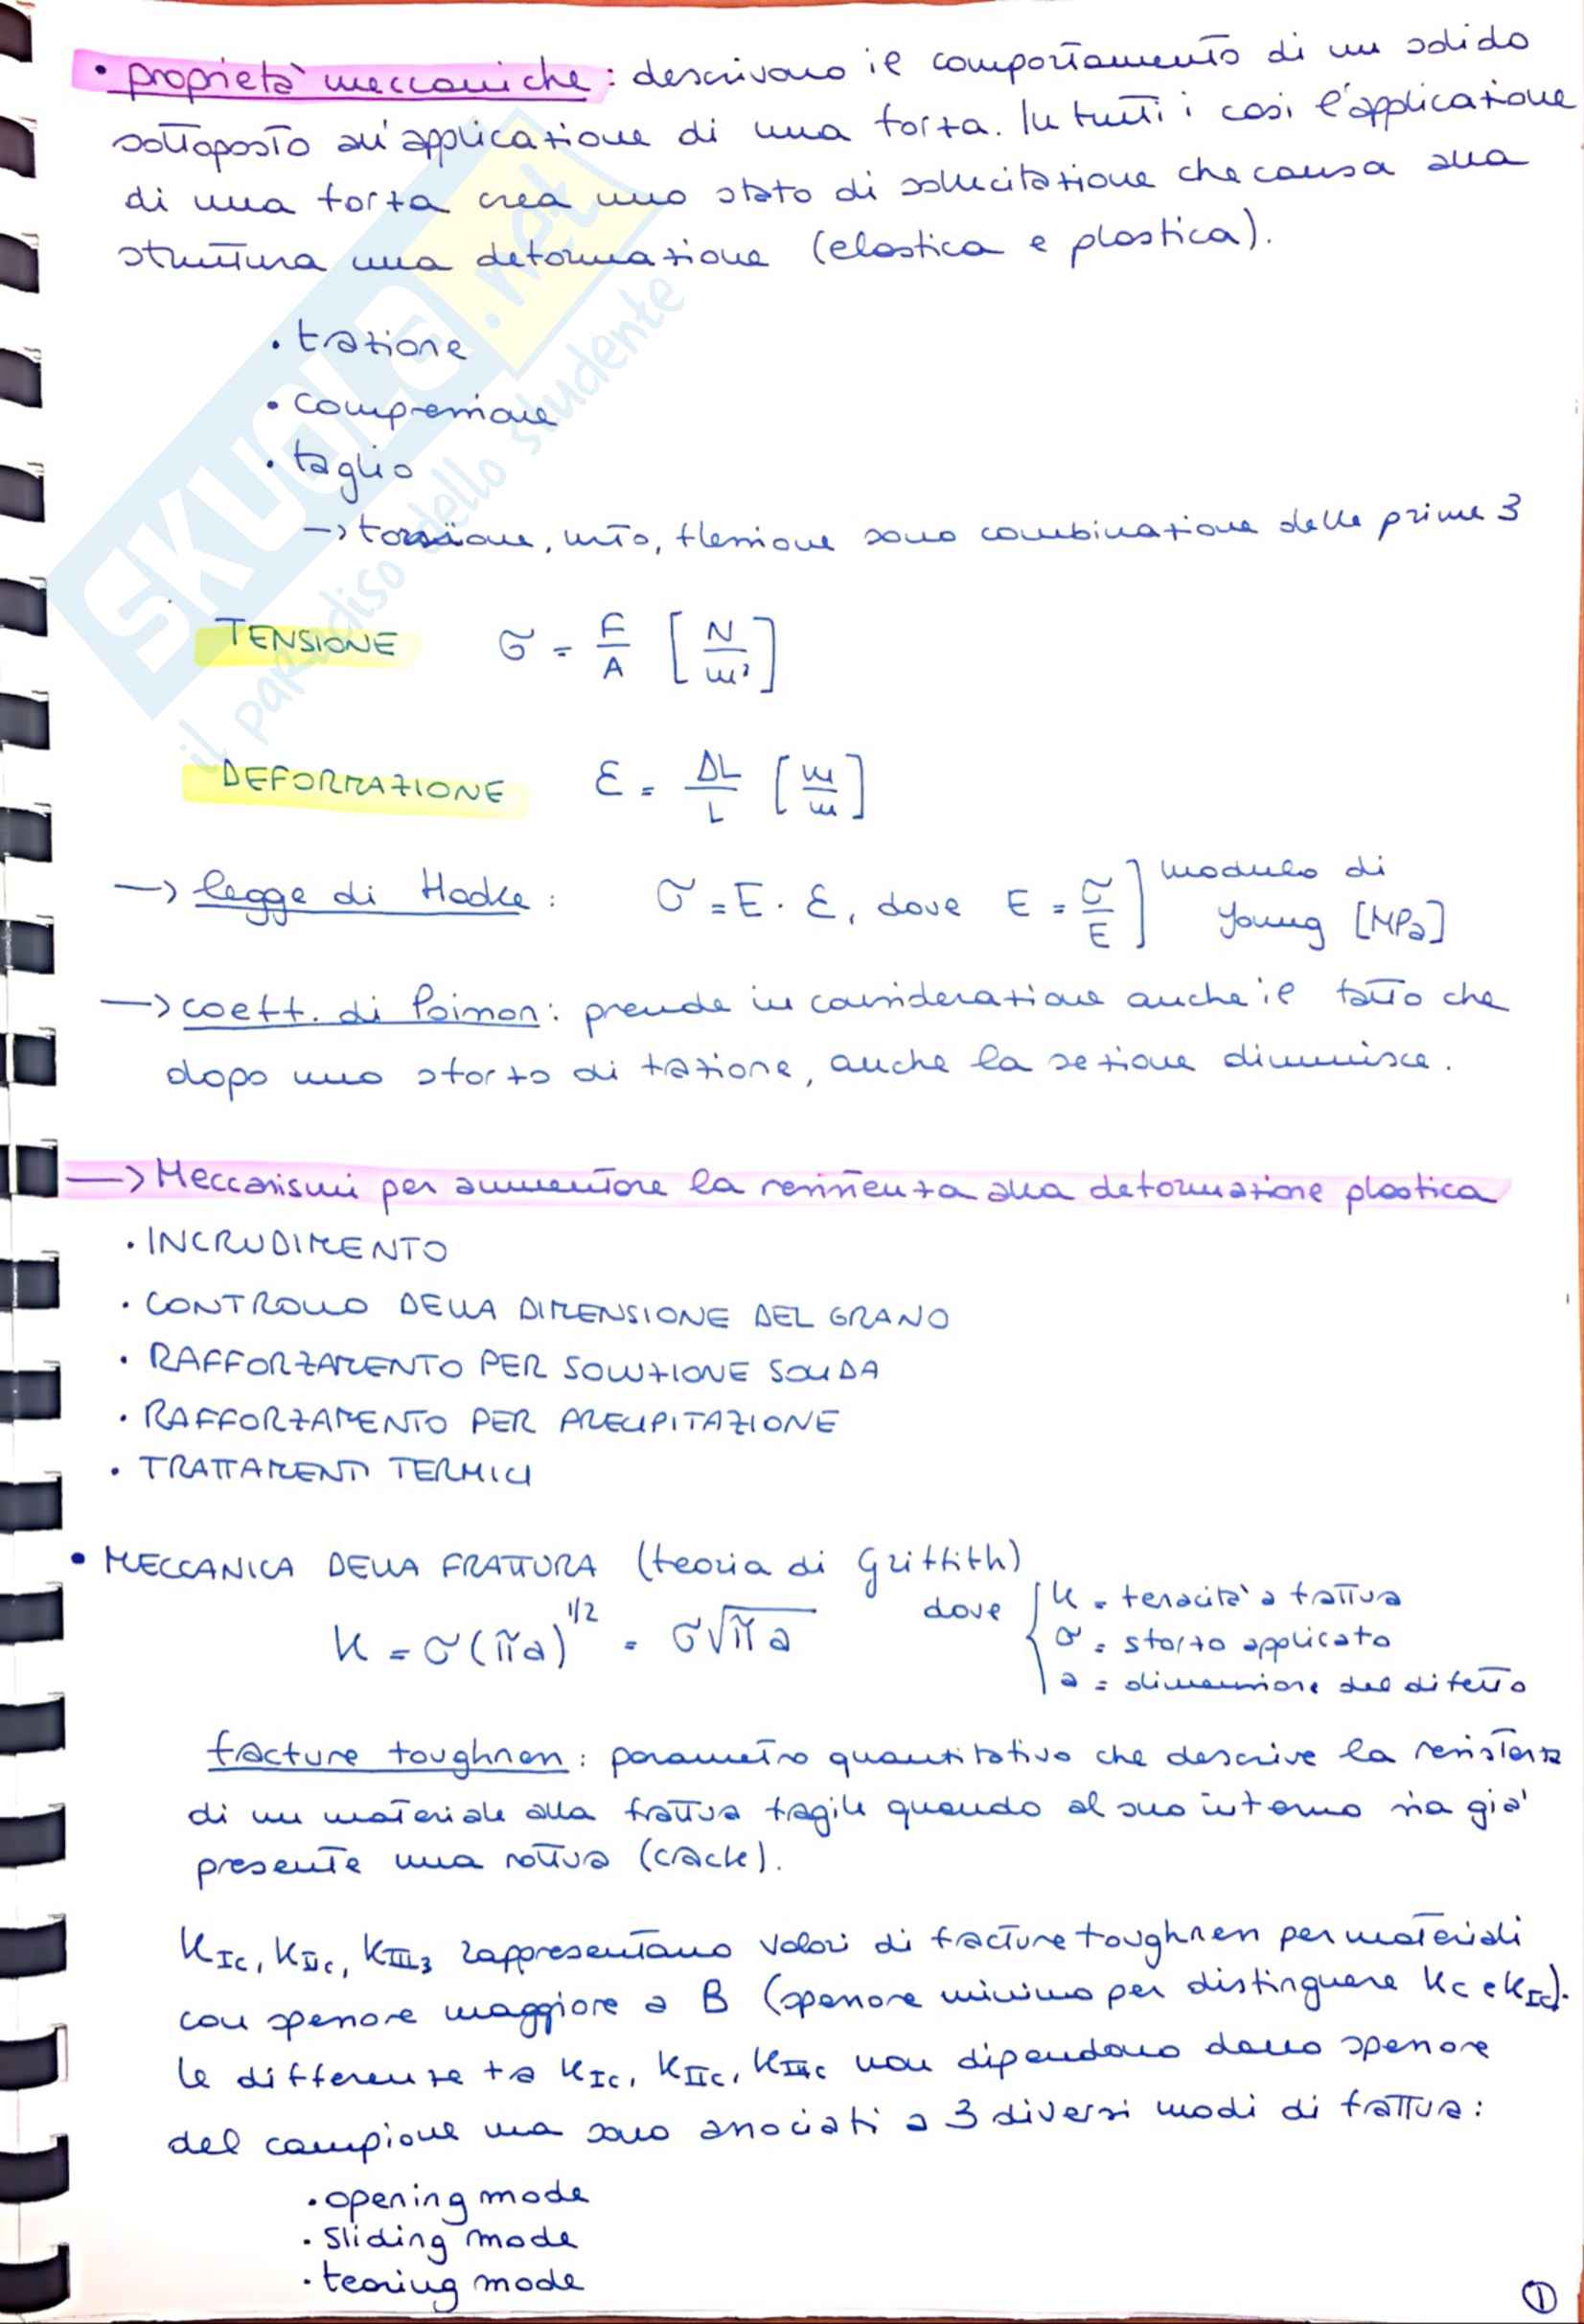 • proprietà meccaniche: descrivono il comportamento di un solido
sottoposto all'applicazione di una forza. In tutti i casi l'applicazione
di una forza crea uno stato di sollecitazione che causa alla
struttura una deformazione (elastica e plastica).
• trazione
• compressione
• taglio
→ torsione, urto, flessione sono combinazione delle prime 3
TENSIONE σ = F/A [N/m²]
DEFORMAZIONE ε = ΔL/L [m/m]
→ legge di Hooke: σ = E · ε, dove E = σ/E ] modulo di
Young [MPa]
→ coeff. di Poisson: prende in considerazione anche il fatto che
dopo uno sforzo di trazione, anche la sezione diminuisce.
→ Meccanismi per aumentare la resistenza alla deformazione plastica
• INCRUDIMENTO
• CONTROLLO DELLA DIMENSIONE DEL GRANO
• RAFFORZAMENTO PER SOLUZIONE SOLIDA
• RAFFORZAMENTO PER PRECIPITAZIONE
• TRATTAMENTI TERMICI
• MECCANICA DELLA FRATTURA (teoria di Griffith)
K = σ(πa)^1/2 = σ√πa dove { K = tenacità a frattura
σ = sforzo applicato
a = dimensione del difetto
fracture toughness: parametro quantitativo che descrive la resistenza
di un materiale alla frattura fragile quando al suo interno sia già
presente una rottura (crack).
K_Ic, K_IIc, K_III3 rappresentano valori di fracture toughness per materiali
con spessore maggiore a B (spessore minimo per distinguere Kc e K_Ic).
le differenze tra K_Ic, K_IIc, K_IIIc non dipendono dallo spessore
del campione ma sono associati a 3 diversi modi di frattura:
• opening mode
• sliding mode
• tearing mode
①
SKUOLA.net
il paradiso dello studente